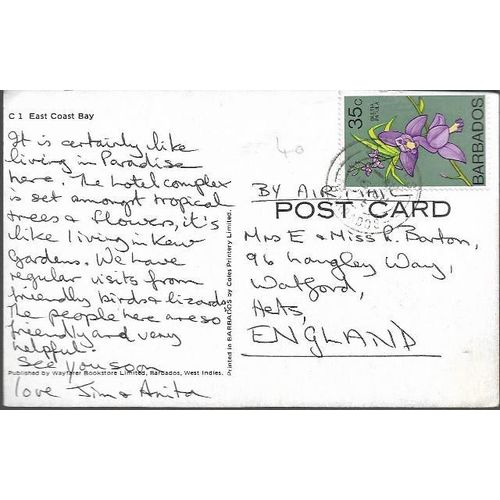 C 1 East Coast Bay
It is certainly like
living in Paradise
here. The hotel complex
is set amongst tropical
trees & flowers, it's
like living in Kew
Gardens. We have
regular visits from
friendly birds & lizards.
The people here are so
friendly and very
helpful.
See you soon
Published by Wayfarer Bookstore Limited, Barbados, West Indies.
love Jim & Anita
Printed in BARBADOS by Coles Printery Limited.
40
35c
BARBADOS
BY AIR MAIL
POST CARD
Mrs E & Miss R. Barton,
96 Langley Way,
Watford,
Herts,
ENGLAND